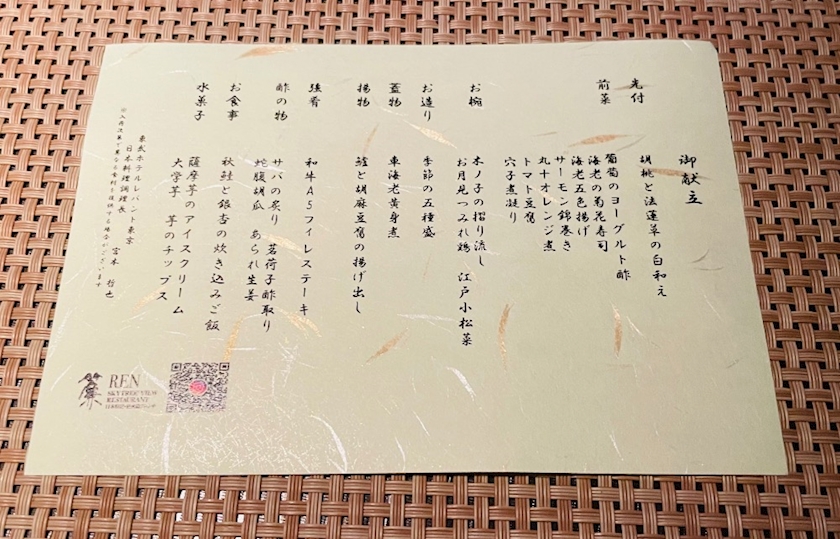 御献立
先付
胡桃と法蓮草の白和え
前菜
葡萄のヨーグルト酢
海老の菊花寿司
海老五色揚げ
サーモン錦巻き
丸十オレンジ煮
トマト豆腐
穴子煮凝り
お椀
木ノ子の摺り流し
お月見つみれ鶏 江戸小松菜
お造り
季節の五種盛
蓋物
車海老黄身煮
揚物
鱧と胡麻豆腐の揚げ出し
強肴
和牛A5フィレステーキ
酢の物
サバの炙り 茗荷子酢取り
蛇腹胡瓜 あられ生姜
お食事
秋鮭と銀杏の炊き込みご飯
水菓子
薩摩芋のアイスクリーム
大学芋 芋のチップス
東武ホテルレバント東京
日本料理調理長 宮本 哲也
※入荷次第で異なる食材を提供する場合がございます
簾 REN
SKYTREE VIEW
RESTAURANT